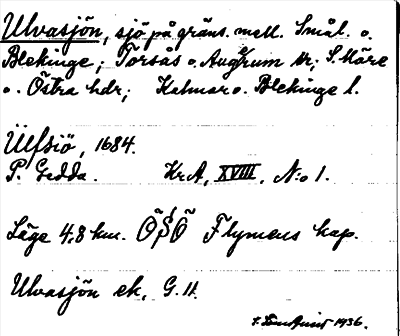 Ulvasjön, sjö på gräns. mell. Smål. o.
Blekinge; Torsås o. Augerum sn; S. Möre
o. Östra hdr; Kalmar o. Blekinge l.
Ülfsiö, 1684.
P. Gedda. Kr.A, XVIII, N:o 1.
Läge 4,8 km. ÖSÖ Flymens kap.
Ulvasjön ek, G. 11.
1936.